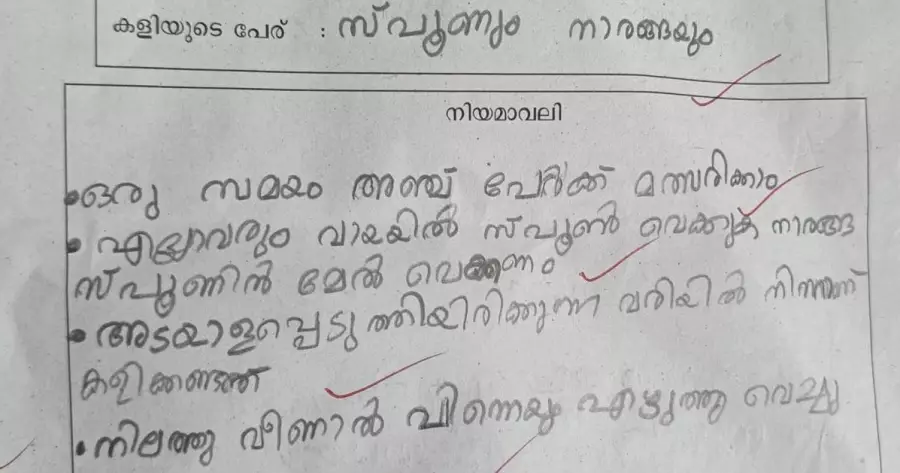 കളിയുടെ പേര് : സ്പൂണും നാരങ്ങയും
നിയമാവലി
• ഒരു സമയം അഞ്ച് പേർക്ക് മത്സരിക്കാം
• എല്ലാവരും വായയിൽ സ്പൂൺ വെക്കുക നാരങ്ങ
സ്പൂണിൻ മേൽ വെക്കണം
• അടയാളപ്പെടുത്തിയിരിക്കുന്ന വരിയിൽ നിന്നാണ്
കളിക്കേണ്ടത്
• നിലത്തു വീണാൽ പിന്നെയും എടുത്തു വെച്ചു